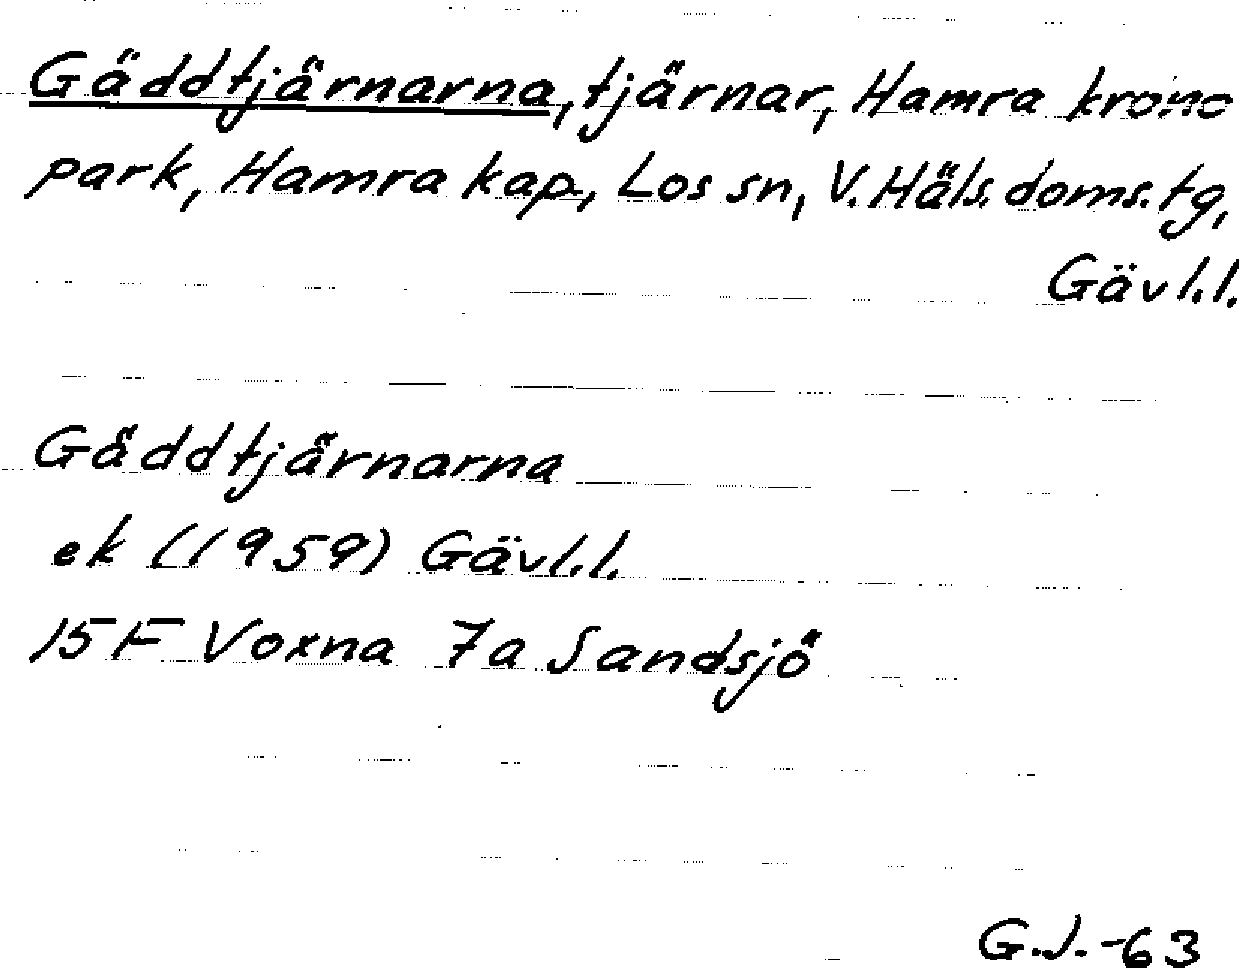 Gäddtjärnarna, tjärnar, Hamra krono
park, Hamra kap., Los sn, V. Häls. doms. tg,
Gävl. l.
Gäddtjärnarna
ek (1959) Gävl. l.
15F Voxna 7a Sandsjö
G.J. -63